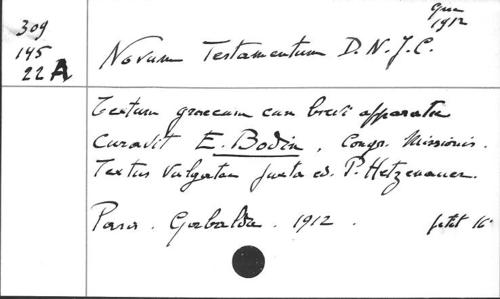 309
145
22 A
1912
Novum Testamentum D. N. J. C.
Textum graecum cum brevi apparatu
Curavit E. Bodin, Congr. Missionis.
Textus Vulgatae juxta ed. P. Hetzenauer.
Paris. Gabalda. 1912. petit 16°